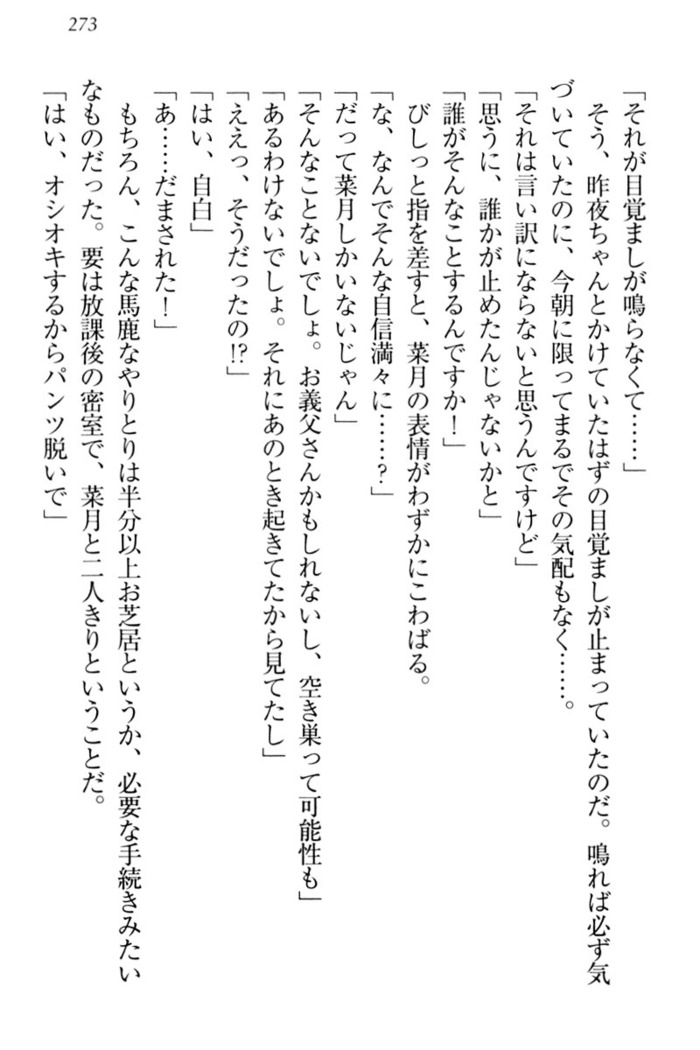 273
「それが目覚ましが鳴らなくて……」
そう、昨夜ちゃんとかけていたはずの目覚ましが止まっていたのだ。鳴れば必ず気
づいていたのに、今朝に限ってまるでその気配もなく……。
「それは言い訳にならないと思うんですけど」
「思うに、誰かが止めたんじゃないかと」
「誰がそんなことするんですか！」
びしっと指を差すと、菜月の表情がわずかにこわばる。
「な、なんでそんな自信満々に……？」
「だって菜月しかいないじゃん」
「そんなことないでしょ。お義父さんかもしれないし、空き巣って可能性も」
「あるわけないでしょ。それにあのとき起きてたから見てたし」
「ええっ、そうだったの!?」
「はい、自白」
「あ……だまされた！」
もちろん、こんな馬鹿なやりとりは半分以上お芝居というか、必要な手続きみたい
なものだった。要は放課後の密室で、菜月と二人きりということだ。
「はい、オシオキするからパンツ脱いで」